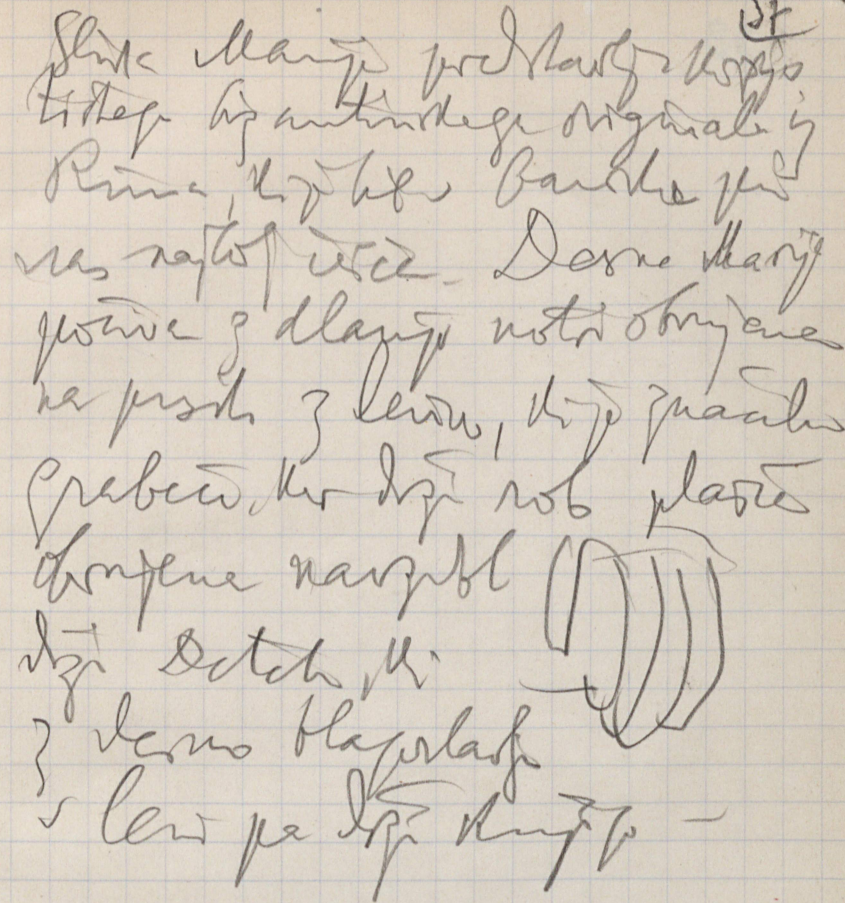 Slika Marije predstavlja kopijo
tistega bizantinskega originala iz
Rima, ki je bil v baroku pri
nas najbolj češčen. Desna Marije
počiva z dlanjo noter obrnjena
na prsih z levico, ki je značilno
ker drži rob plašča
obrnjena navzdol
drži Dete, ki
z desno blagoslavlja
v levi pa drži knjigo –